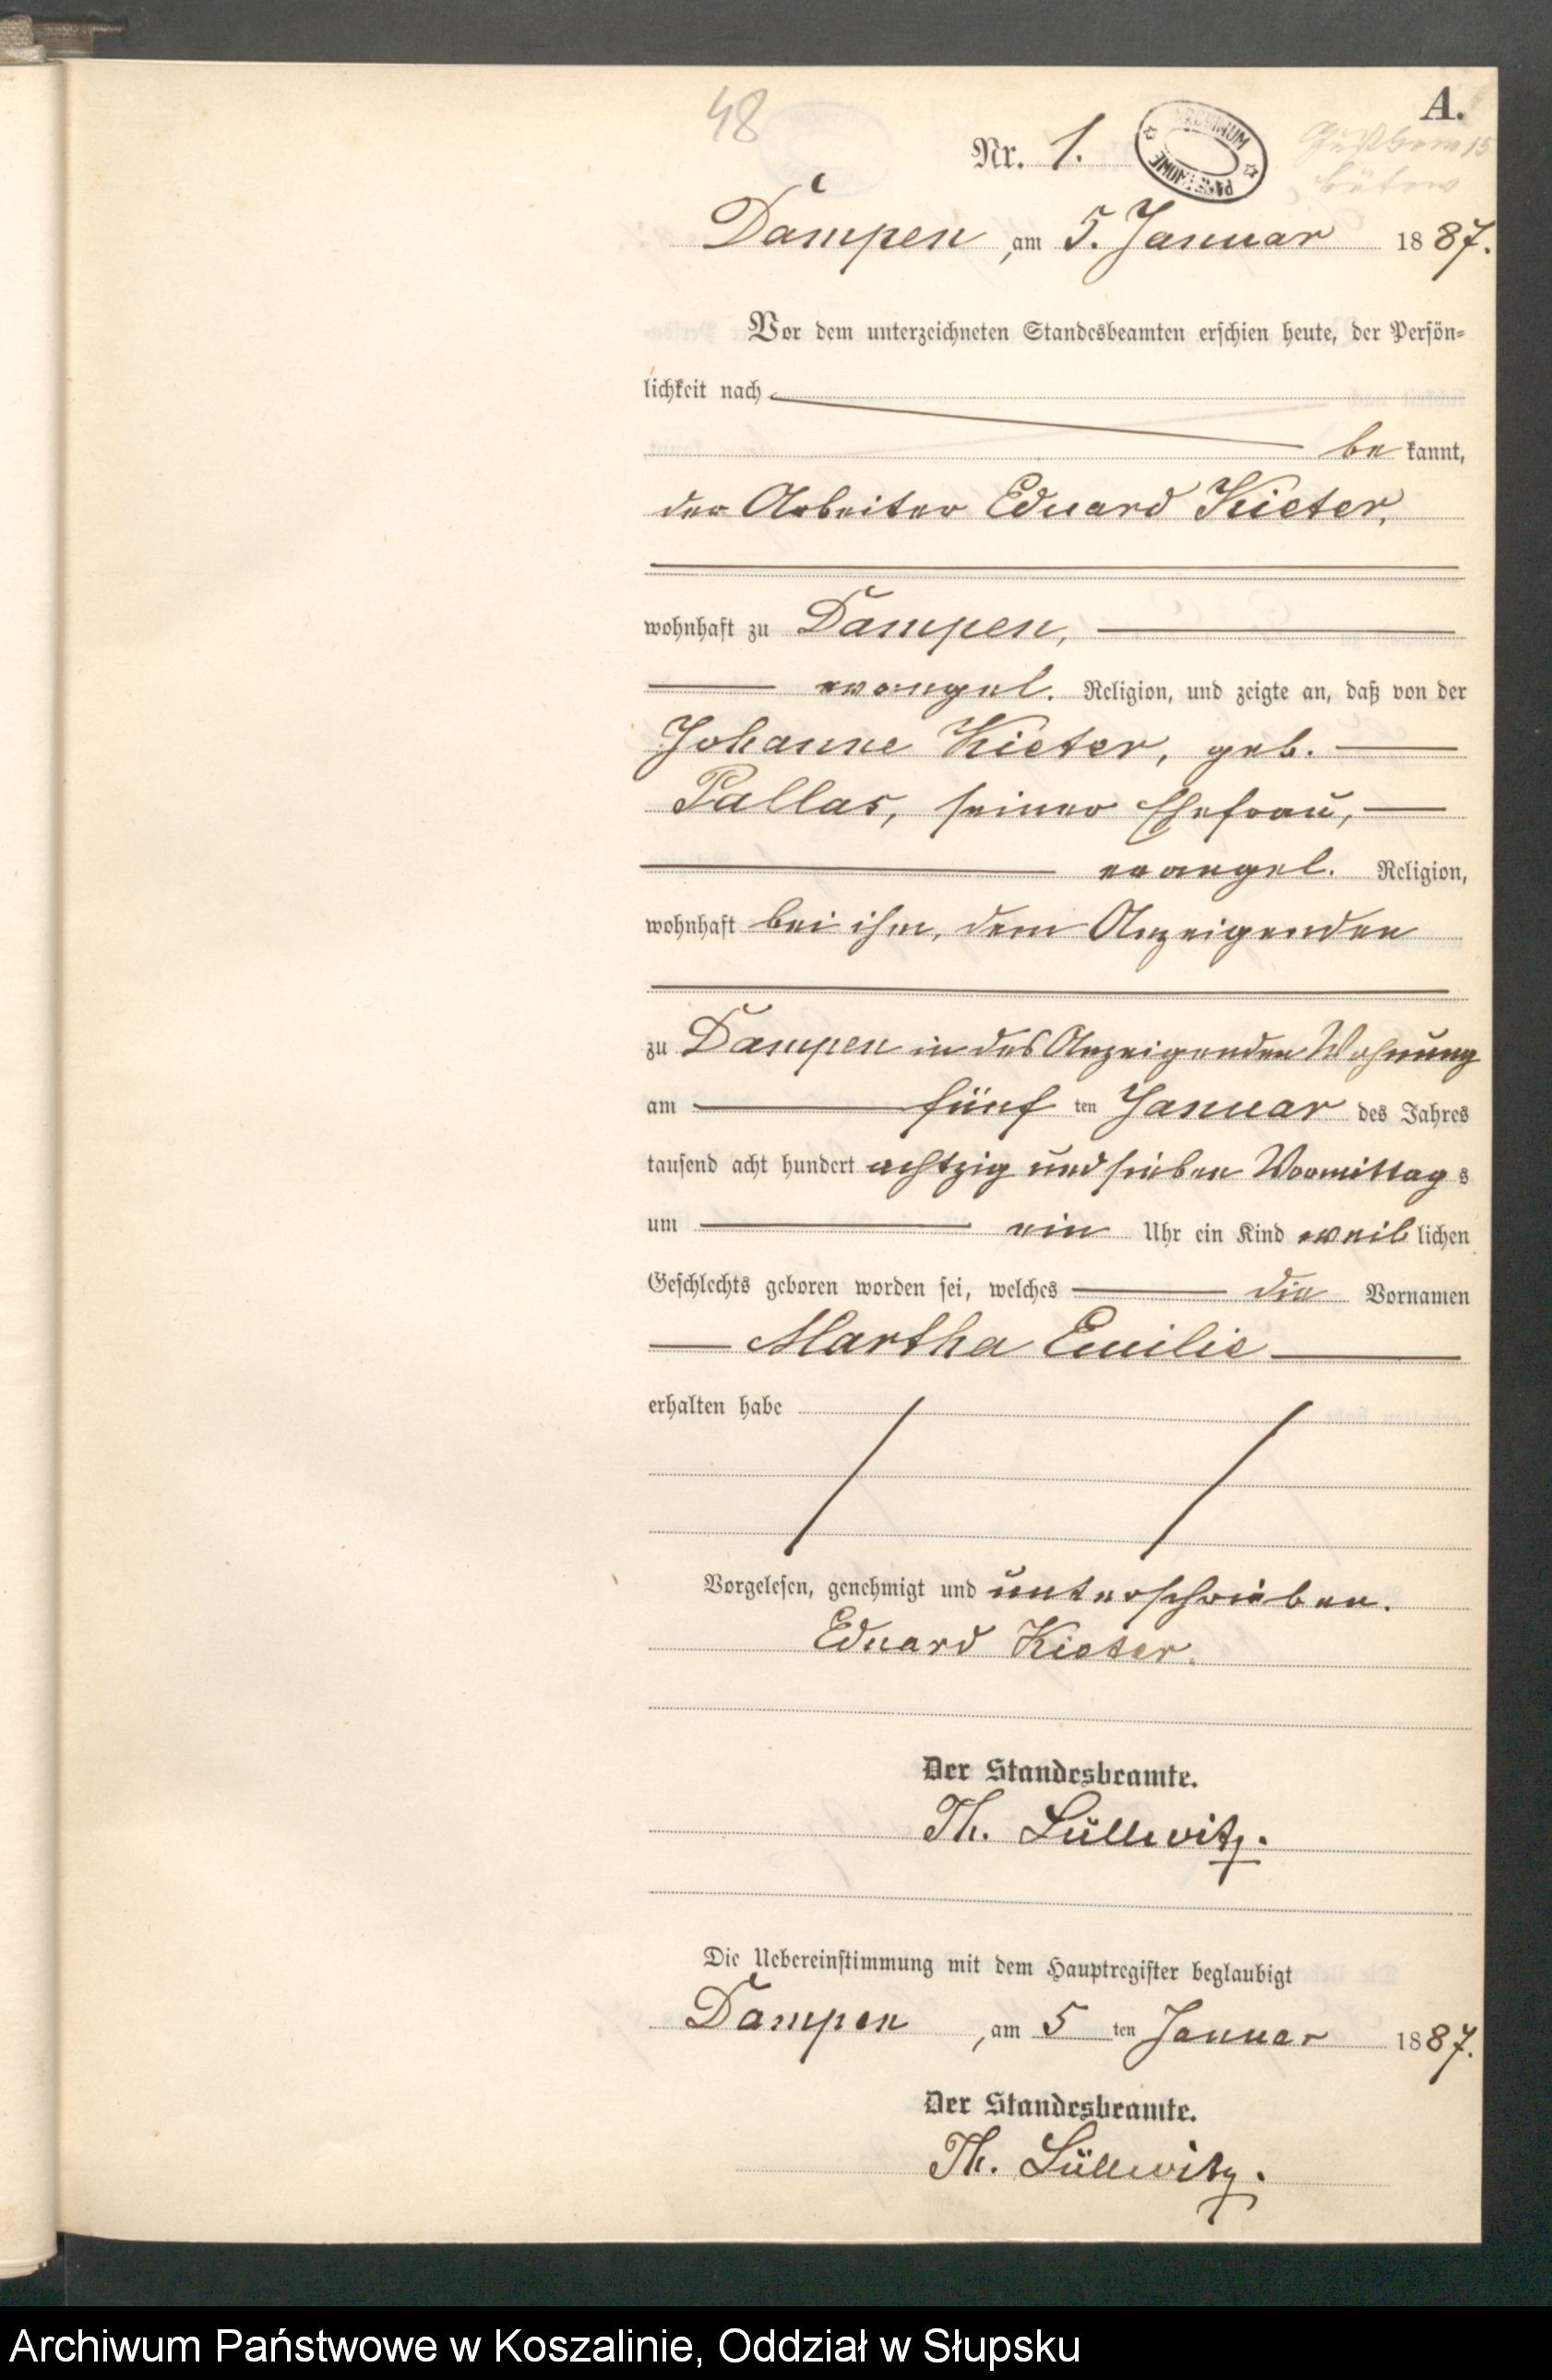 A.
48
Nr. 1.
ARCHIWUM PAŃSTWOWE
Bütow
Dampen, am 5. Januar 1887.
Vor dem unterzeichneten Standesbeamten erschien heute, der Persön-
lichkeit nach
be kannt,
der Arbeiter Eduard Kieter,
wohnhaft zu Dampen,
evangel. Religion, und zeigte an, daß von der
Johanne Kieter, geb.
Pallas, seiner Ehefrau,
evangel. Religion,
wohnhaft bei ihm, dem Anzeigenden
zu Dampen in des Anzeigenden Wohnung
am fünf ten Januar des Jahres
tausend acht hundert achtzig und sieben Vormittag s
um ein Uhr ein Kind weib lichen
Geschlechts geboren worden sei, welches die Vornamen
Martha Emilie
erhalten habe
Vorgelesen, genehmigt und unterschrieben.
Eduard Kieter.
Der Standesbeamte.
Th. Lüllwitz.
Die Uebereinstimmung mit dem Hauptregister beglaubigt
Dampen, am 5 ten Januar 1887.
Der Standesbeamte.
Th. Lüllwitz.
Archiwum Państwowe w Koszalinie, Oddział w Słupsku